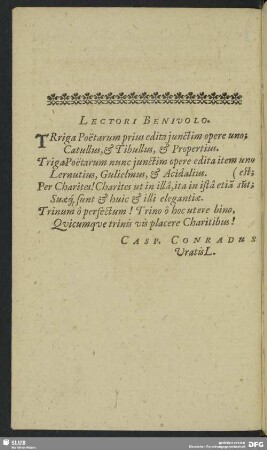 LECTORI BENIVOLO.
TRriga Poëtarum prius edita junctim opere uno;
Catullus, & Tibullus, & Propertius.
Triga Poëtarum nunc junctim opere edita item uno
Lernutius, Gulielmus, & Acidalius. (est;
Per Charites! Charites ut in illâ, ita in istâ etiã sũt;
Suæq́; sunt & huic & illi elegantiæ.
Trinum ô perfectum! Trino ô hoc utere bino,
Qvicumqve trinis vis placere Charitibus!
CASP. CONRADUS
Uratisl.
SLUB
DFG